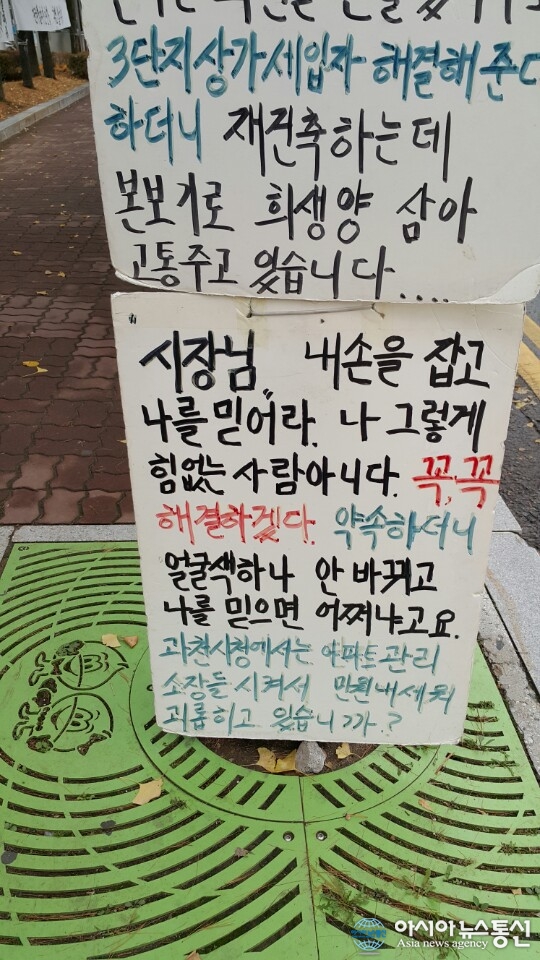 3단지상가세입자 해결해준다
하더니 재건축하는데
본보기로 희생양 삼아
고통주고 있습니다....
시장님, 내손을 잡고
나를 믿어라. 나 그렇게
힘없는 사람아니다. 꼭, 꼭
해결하겠다. 약속하더니
얼굴색하나 안 바뀌고
나를 믿으면 어쩌냐고요.
과천시청에서는 아파트관리
소장들 시켜서 민원내세워
괴롭히고 있습니까?
아시아뉴스통신
Asia news agency